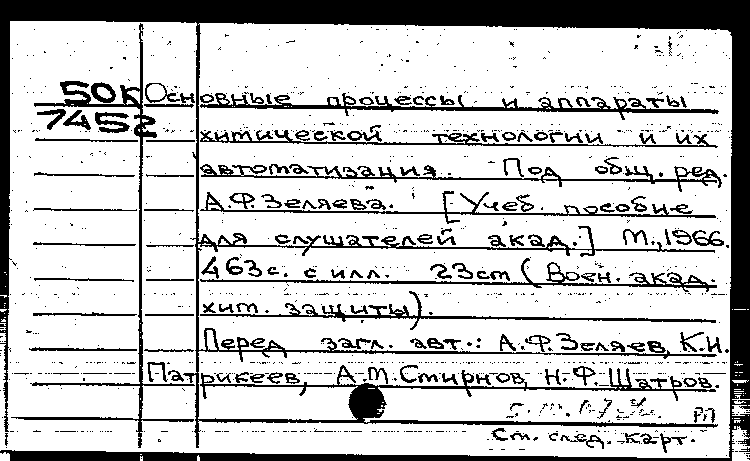 50К Основные процессы и аппараты
7452
химической технологии и их
автоматизация. Под общ. ред.
А.Ф.Зеляева. [Учеб. пособие
для слушателей акад.] М.,1966.
463с. с илл. 23см (Воен. акад.
хим. защиты).
Перед загл. авт.: А.Ф.Зеляев, К.И.
Патрикеев, А.М.Смирнов, Н.Ф.Шатров.
РП
См. след. карт.